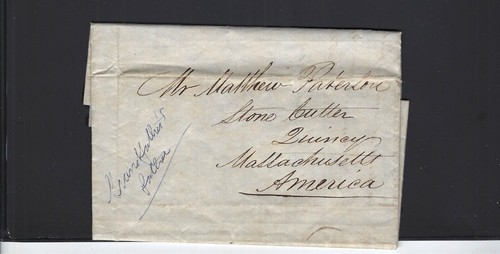 Mr Matthew Paterson
Stone Cutter
Quincy
Massachusetts
America